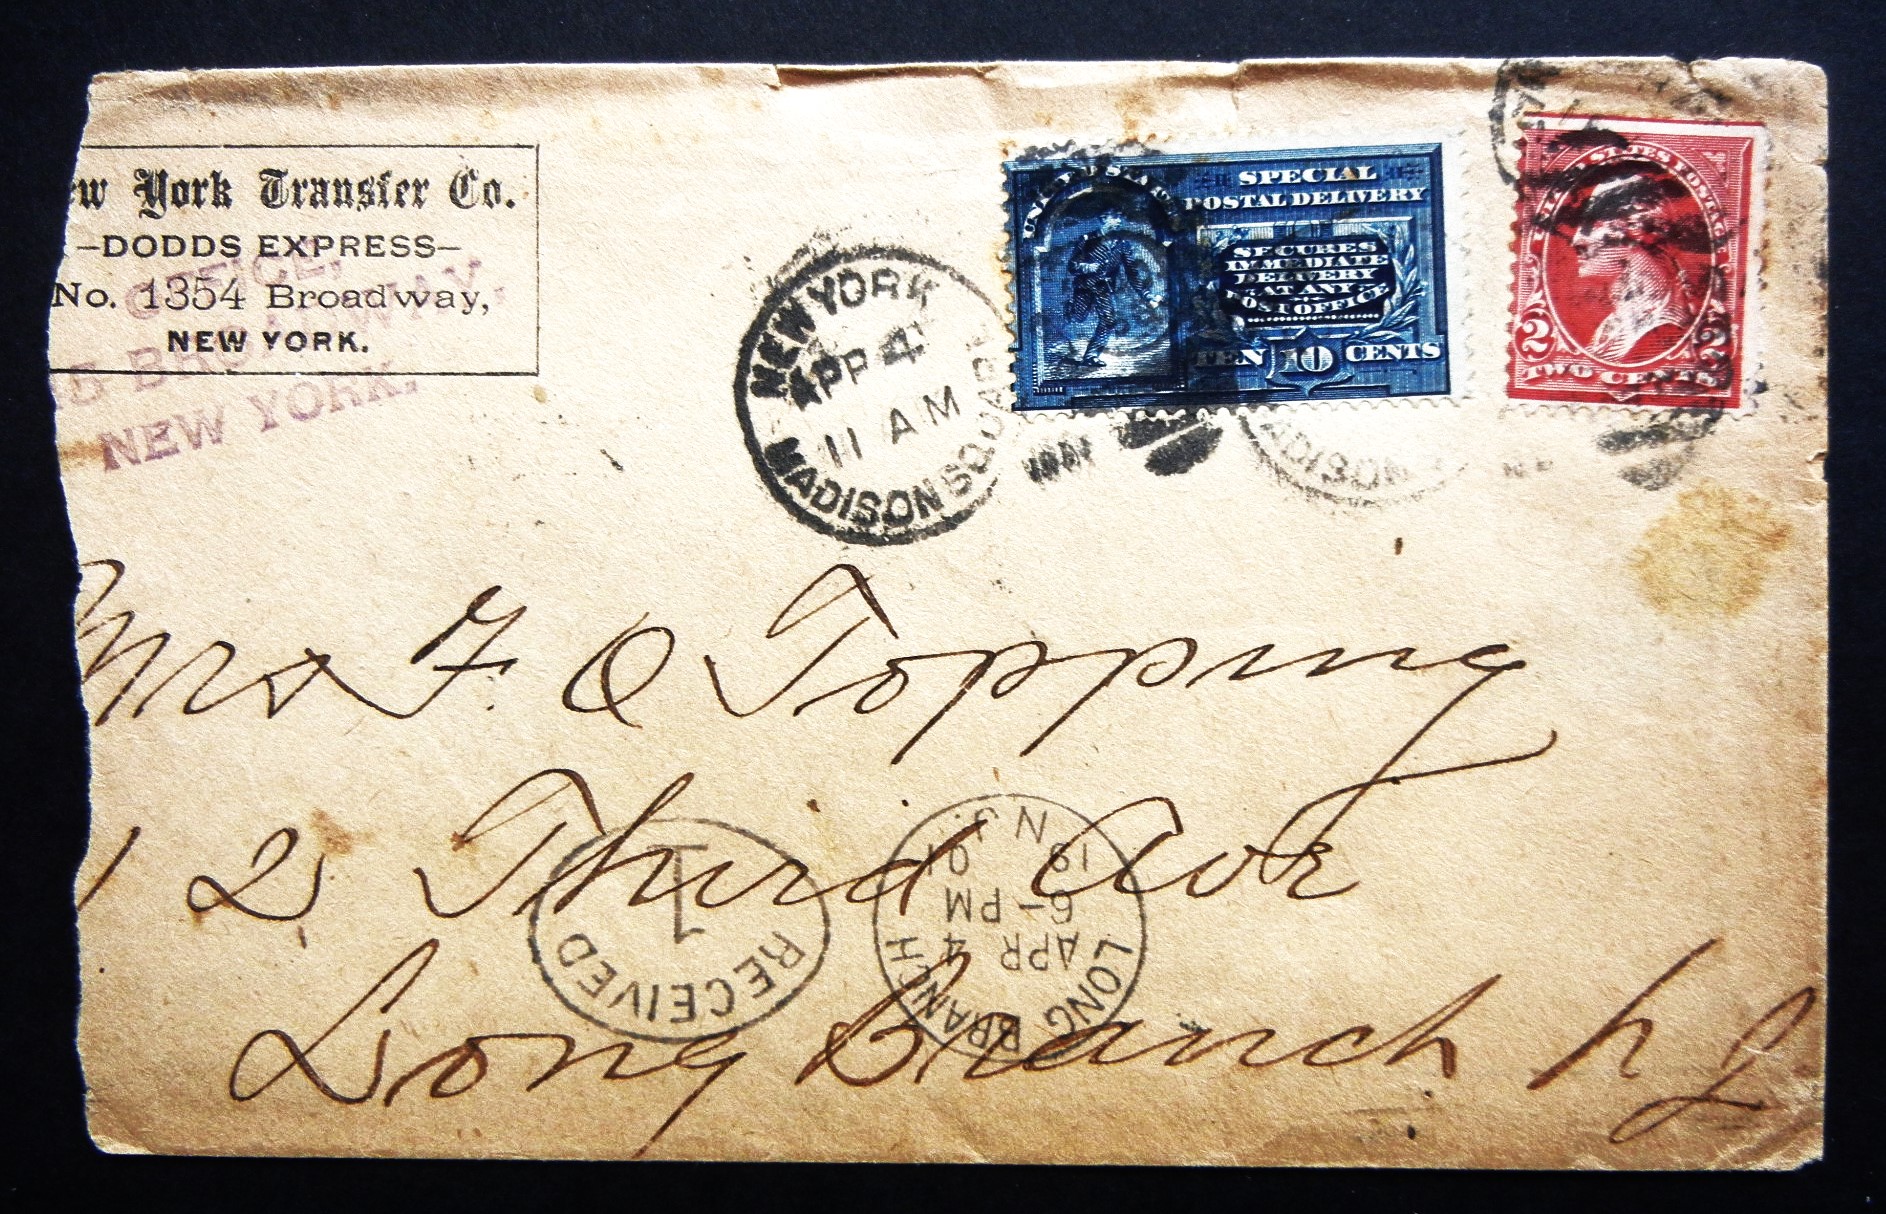 ew York Transfer Co.
—DODDS EXPRESS—
No. 1354 Broadway,
NEW YORK.
OFFICE,
NEW YORK.
NEW YORK
APR 4
11 AM
MADISON SQUARE
UNITED STATES
SPECIAL
POSTAL DELIVERY
SECURES
IMMEDIATE
DELIVERY
AT ANY
POST OFFICE
TEN 10 CENTS
UNITED STATES POSTAGE
2 2
TWO CENTS
MADISON
Mrs F. O Topping
12 Third Ave
Long Branch N J
RECEIVED
1
LONG BRANCH
APR 4
6-PM
1901
N.J.